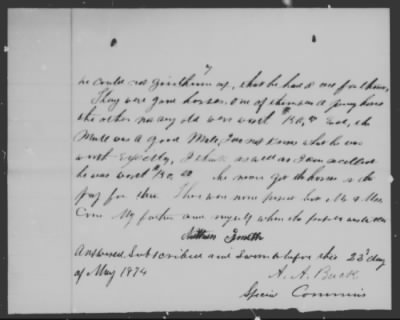 7
he could not give them up, that he had a use for them,
They were good horses. One of them was a young horse
the other not any old were worth $150.00 Each, the
Mule was a good Mule, I do not know what he was
worth Exactly, I think as well as I can recollect
he was worth $150.00 We never got the horses or the
pay for them. There was none present but Mr & Mrs
Cron My father and myself when the
Smith
Answered, Subscribed and Sworn to before this 23d day
of May 1874
A. A. Buck
Special Commis